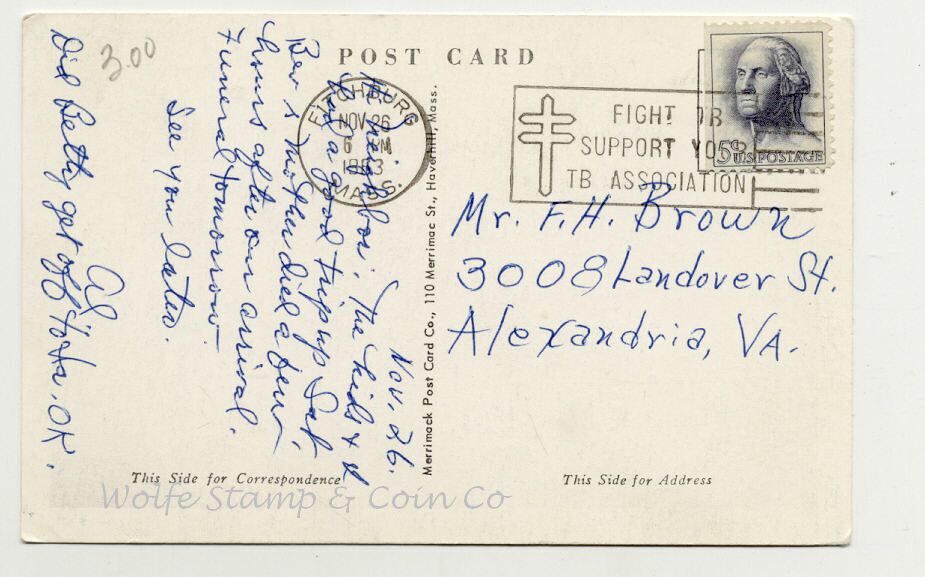 3.00
POST CARD
Nov. 26.
Hi neighbor: The kids & I
had a good trip up Sat.
Bev's mother died a few
hours after our arrival.
Funeral tomorrow.
See you later.
Al
Did Betty get off to OK.
FITCHBURG
NOV 26
6 PM
1963
MASS.
FIGHT TB
SUPPORT YOUR
TB ASSOCIATION
5¢ U.S. POSTAGE
Merrimack Post Card Co., 110 Merrimac St., Haverhill, Mass.
Mr. F.H. Brown
3008 Landover St.
Alexandria, VA.
This Side for Correspondence
This Side for Address
Wolfe Stamp & Coin Co